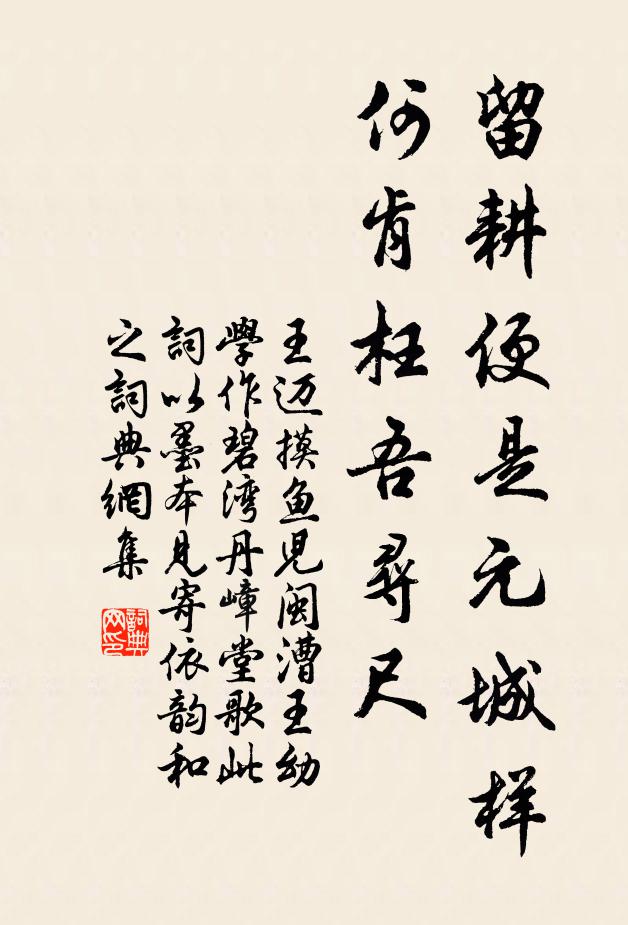 留耕便是元城样
何肯枉吾尋尺
王迈摸鱼児闽漕王幼
學作碧湾丹嶂堂歌此
詞以墨本見寄依韵和
之詞典網集
詞典
网印